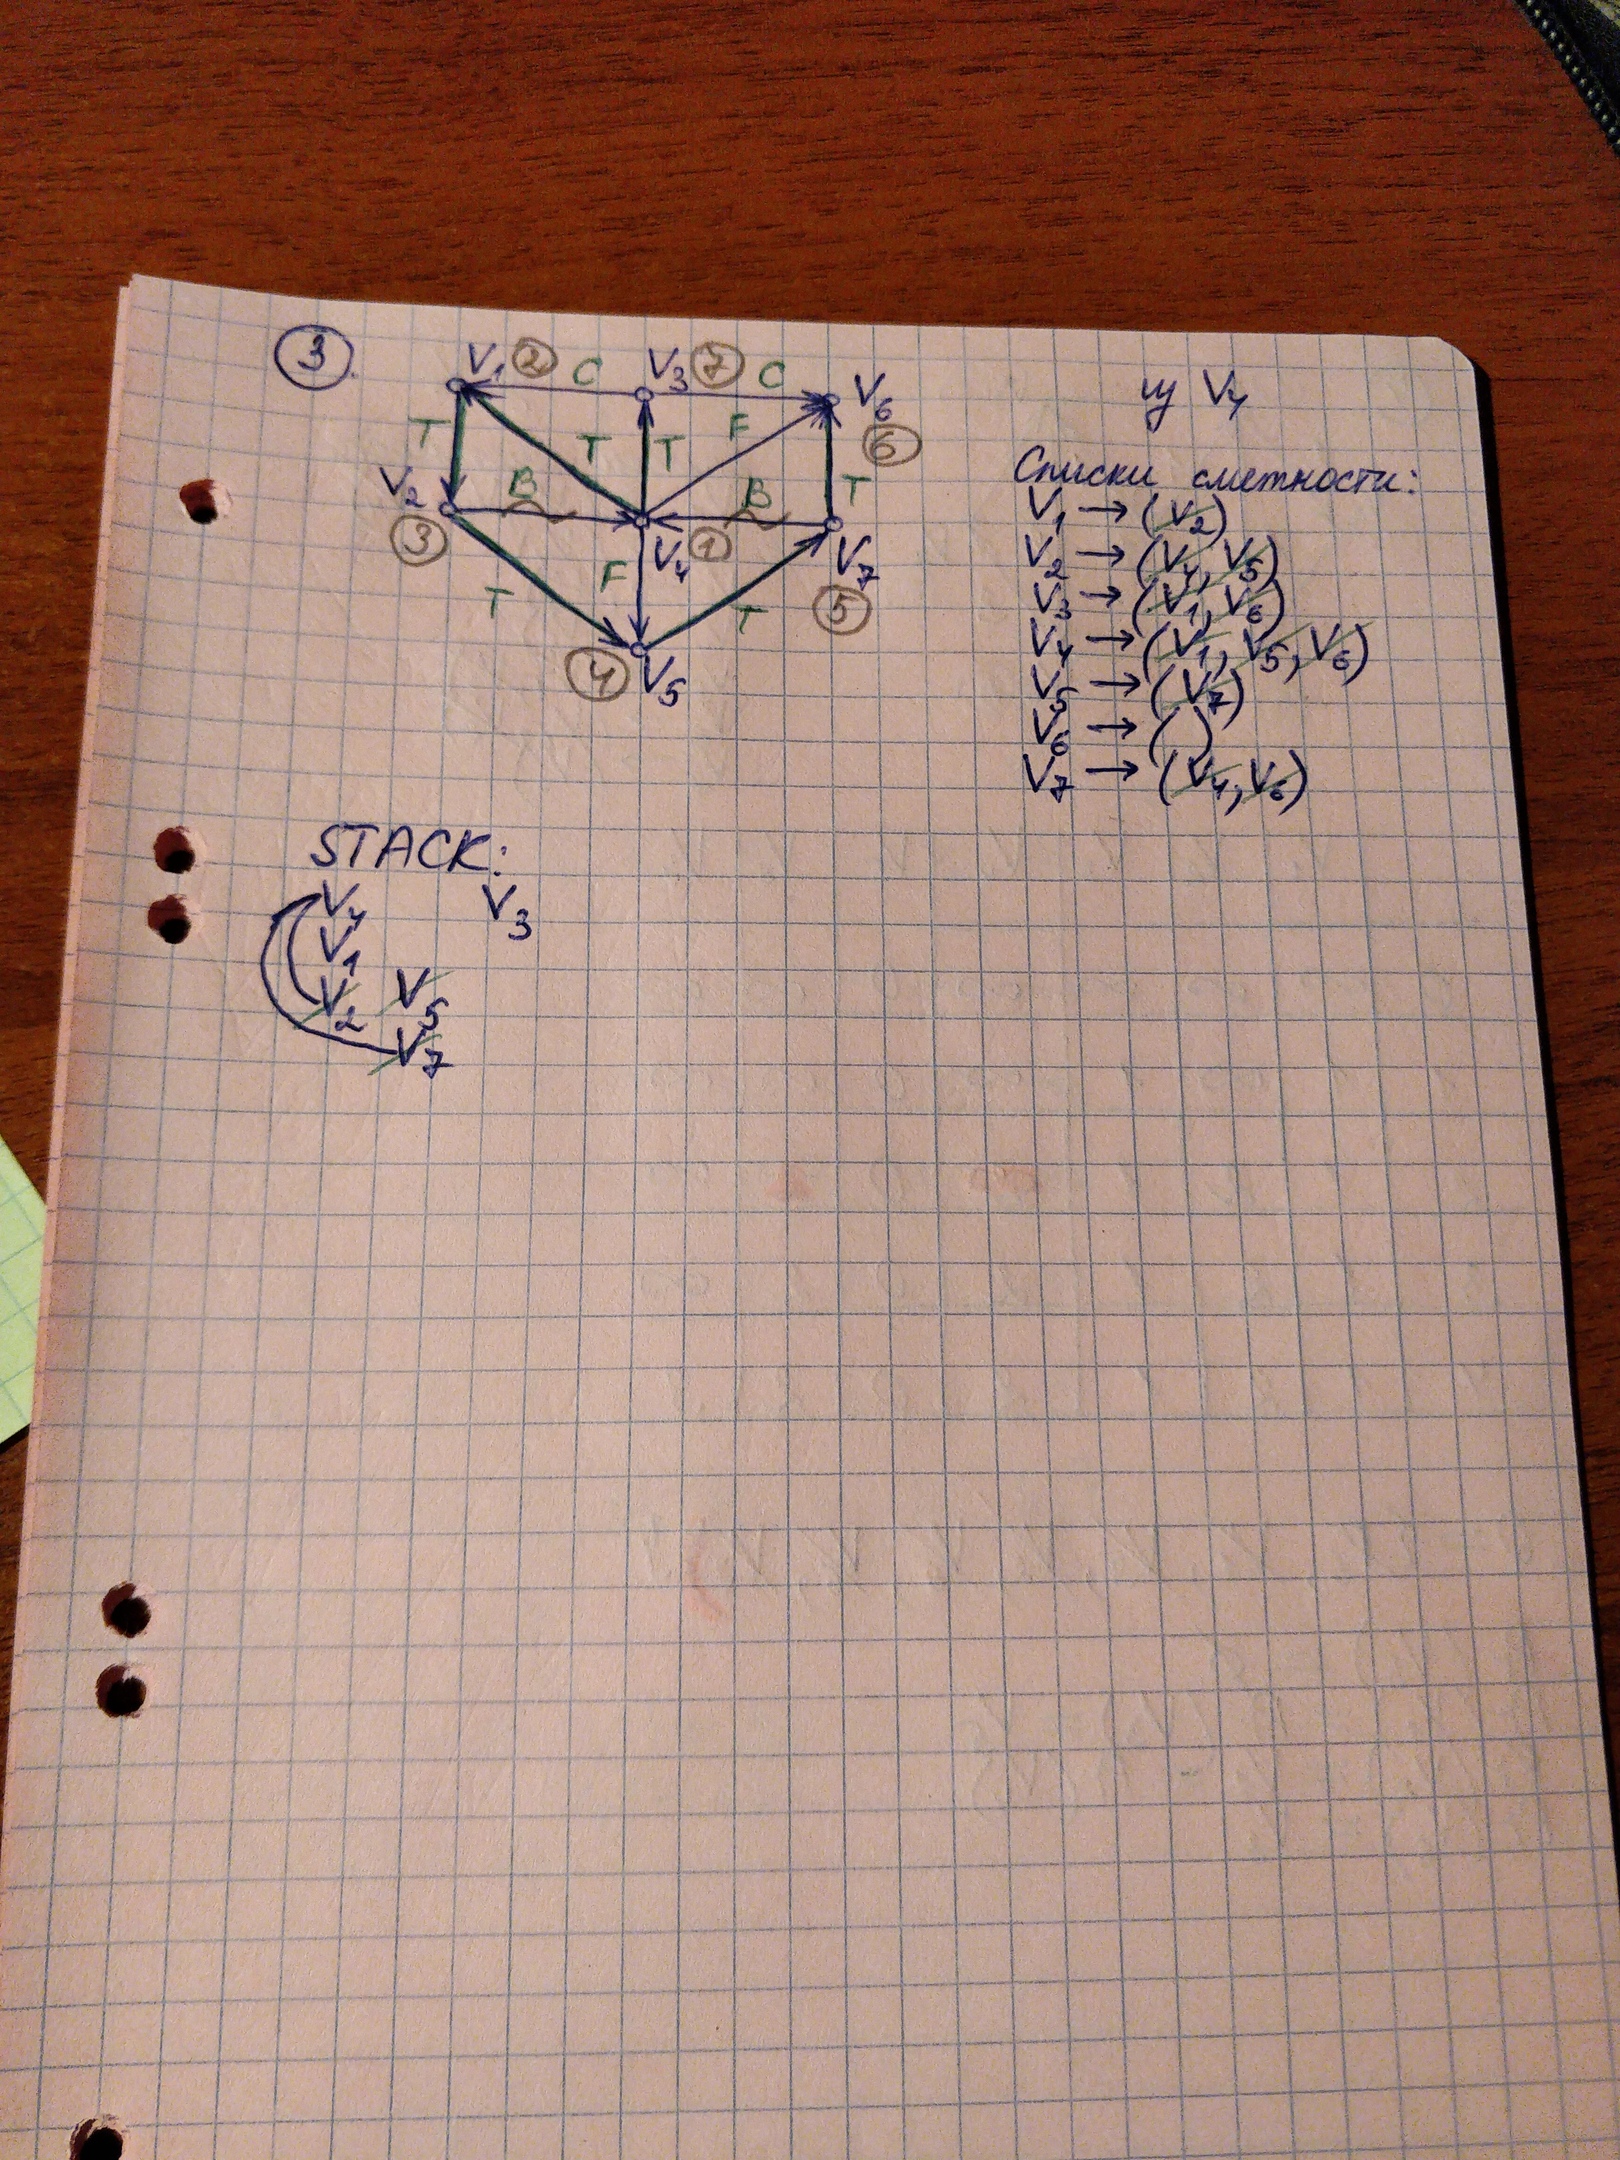 3.
V1 2 C V3 7 C V6
6
T T T F T
V2 B B
3 V4 1 V7
T F T 5
4 V5
из V4
Списки смежности:
V1 → (V2)
V2 → (V4, V5)
V3 → (V1, V6)
V4 → (V1, V5, V6)
V5 → (V7)
V6 → ( )
V7 → (V4, V6)
STACK:
V4 V3
V1
V2 V5
V7